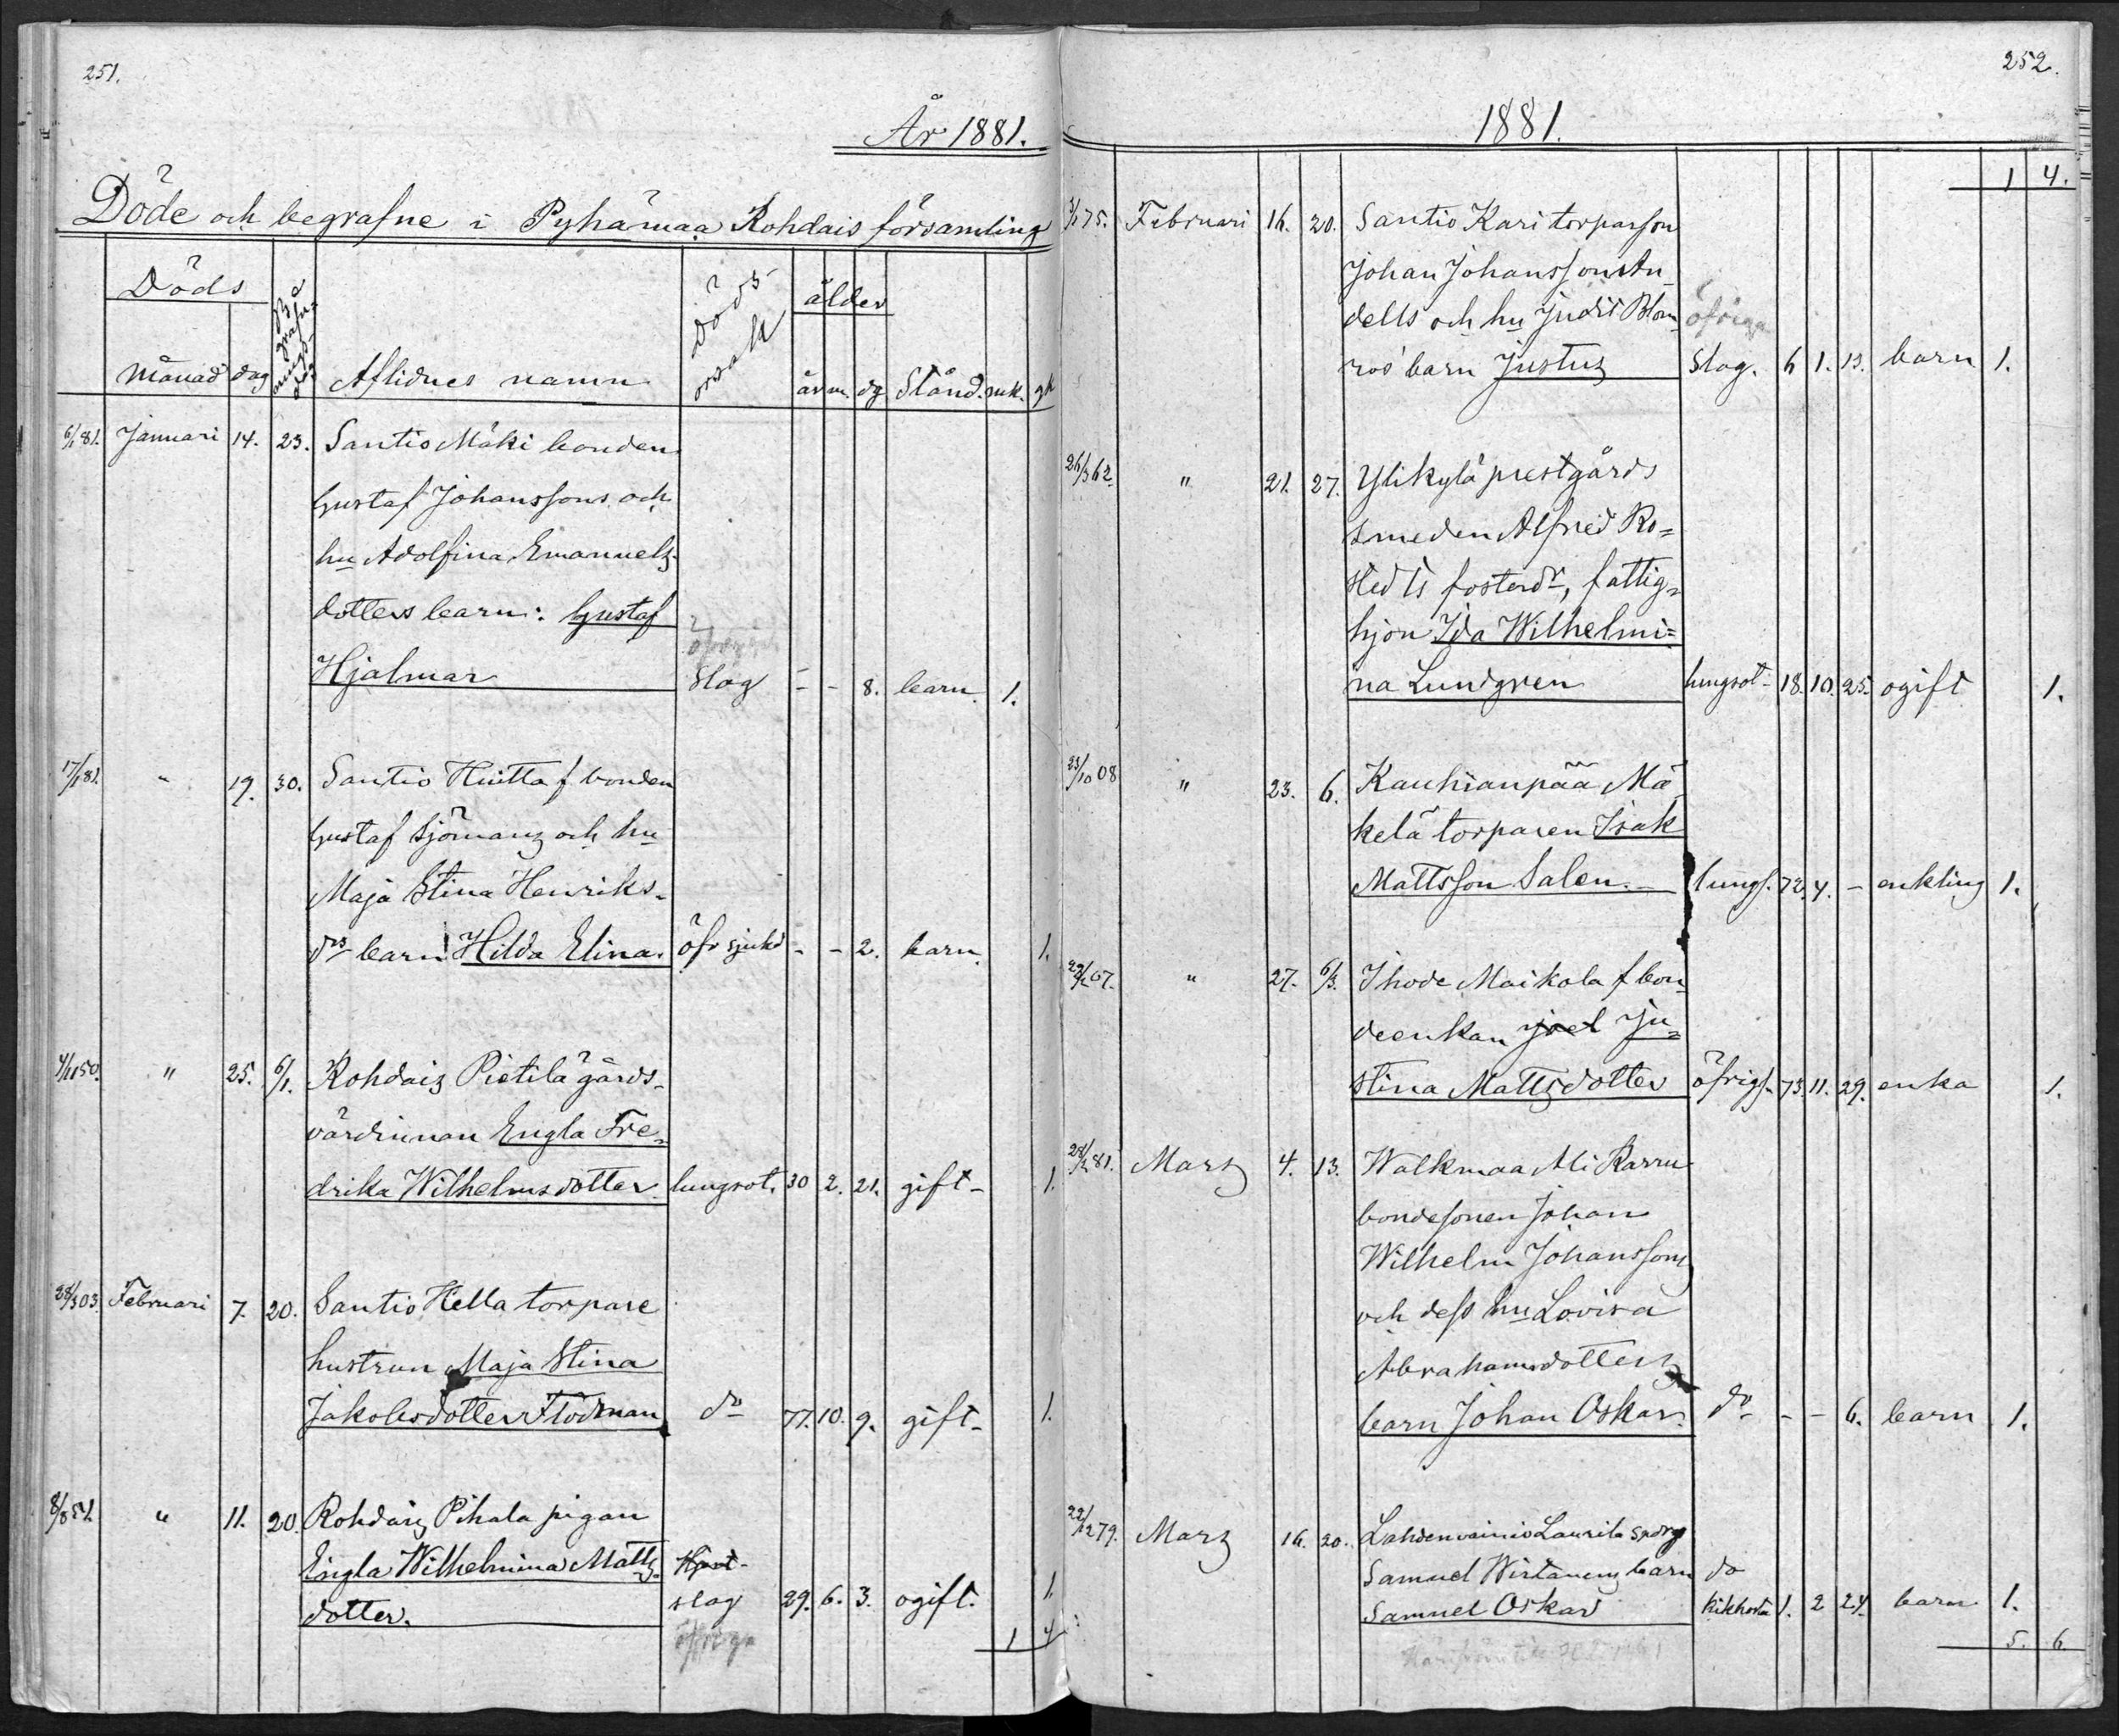 251.
År 1881.
Döde och begrafne i Pyhämaa Rohdais församling
Döds
Begrafningsdag
Döds orsak
ålder
månad dag Aflidnes namn år m. dg Stånd. mk. qk
6/1 81. Januari 14. 23. Santio Mäki bonden
Gustaf Johanssons och
hu Adolfina Emanuels-
dotters barn: Gustaf
Hjalmar Slag - - 8. barn. 1.
17/1 81. " 19. 30. Santio Huitta f bonden
Gustaf Sjömans och hu
Maja Stina Henriks-
drs barn Hilda Elina. öfr sjukd - - 2. barn. 1.
4/11 50. " 25. 6/1. Rohdais Pietilä gårds-
värdinnan Engla Fre-
drika Wilhelmsdotter. lungsot. 30 2. 21. gift- 1.
28/3 03. Februari 7. 20. Santio Hella torpare
hustrun Maja Stina
Jakobsdotter Flodman do 77. 10. 9. gift- 1.
8/8 51. " 11. 20. Rohdais Pihala pigan
Engla Wilhelmina Matts-
dotter. slag 29. 6. 3. ogift. 1.
öfriga
1 4
252.
1881.
1 4.
3/1 75. Februari 16. 20. Santio Kari torparson
Johan Johansson An-
dells och hu Judit Blom-
ros' barn Justus Slag. 6 1. 13. barn 1.
öfriga
26/3 62. " 21. 27. Ylikylä prestgårds
smeden Alfred Ro=
stedts fosterdr, fattig-
hjon Ida Wilhelmi=
na Lundgren lungsot- 18. 10. 25. ogift 1.
23/10 08 " 23. 6. Kauhianpää Mä-
kelä torparen Isak
Mattsson Salen.- lungs. 72. 4. - enkling 1.
" 27. 6/3. Ihode Maikola f bon-
deenkan Ju=
stina Mattsdotter öfrigs. 73. 11. 29. enka 1.
81. Mars 4. 13. Walkmaa Ali Karru
bondesonen Johan
Wilhelm Johanssons
och dess hu Lovisa
Abrahamsdotters
barn Johan Oskar. do - - 6. barn 1.
22/12 79. Mars 16. 20. Lahdenvainio Laurila
Samuel Wirtanens barn do
Samuel Oskar Kikhosta 1. 2 24. barn 1.
5. 6